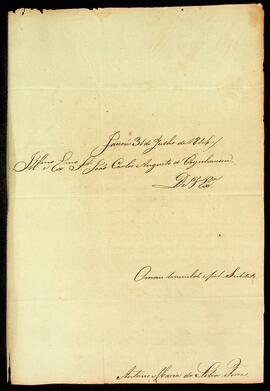 31 de Julho de 1814
Illmo e Exmo Snr João Carlos Augusto d'Oeynhausen
De V. Exa
O mais humilde e fiel Subdito
Antonio Maria da Silva Torres